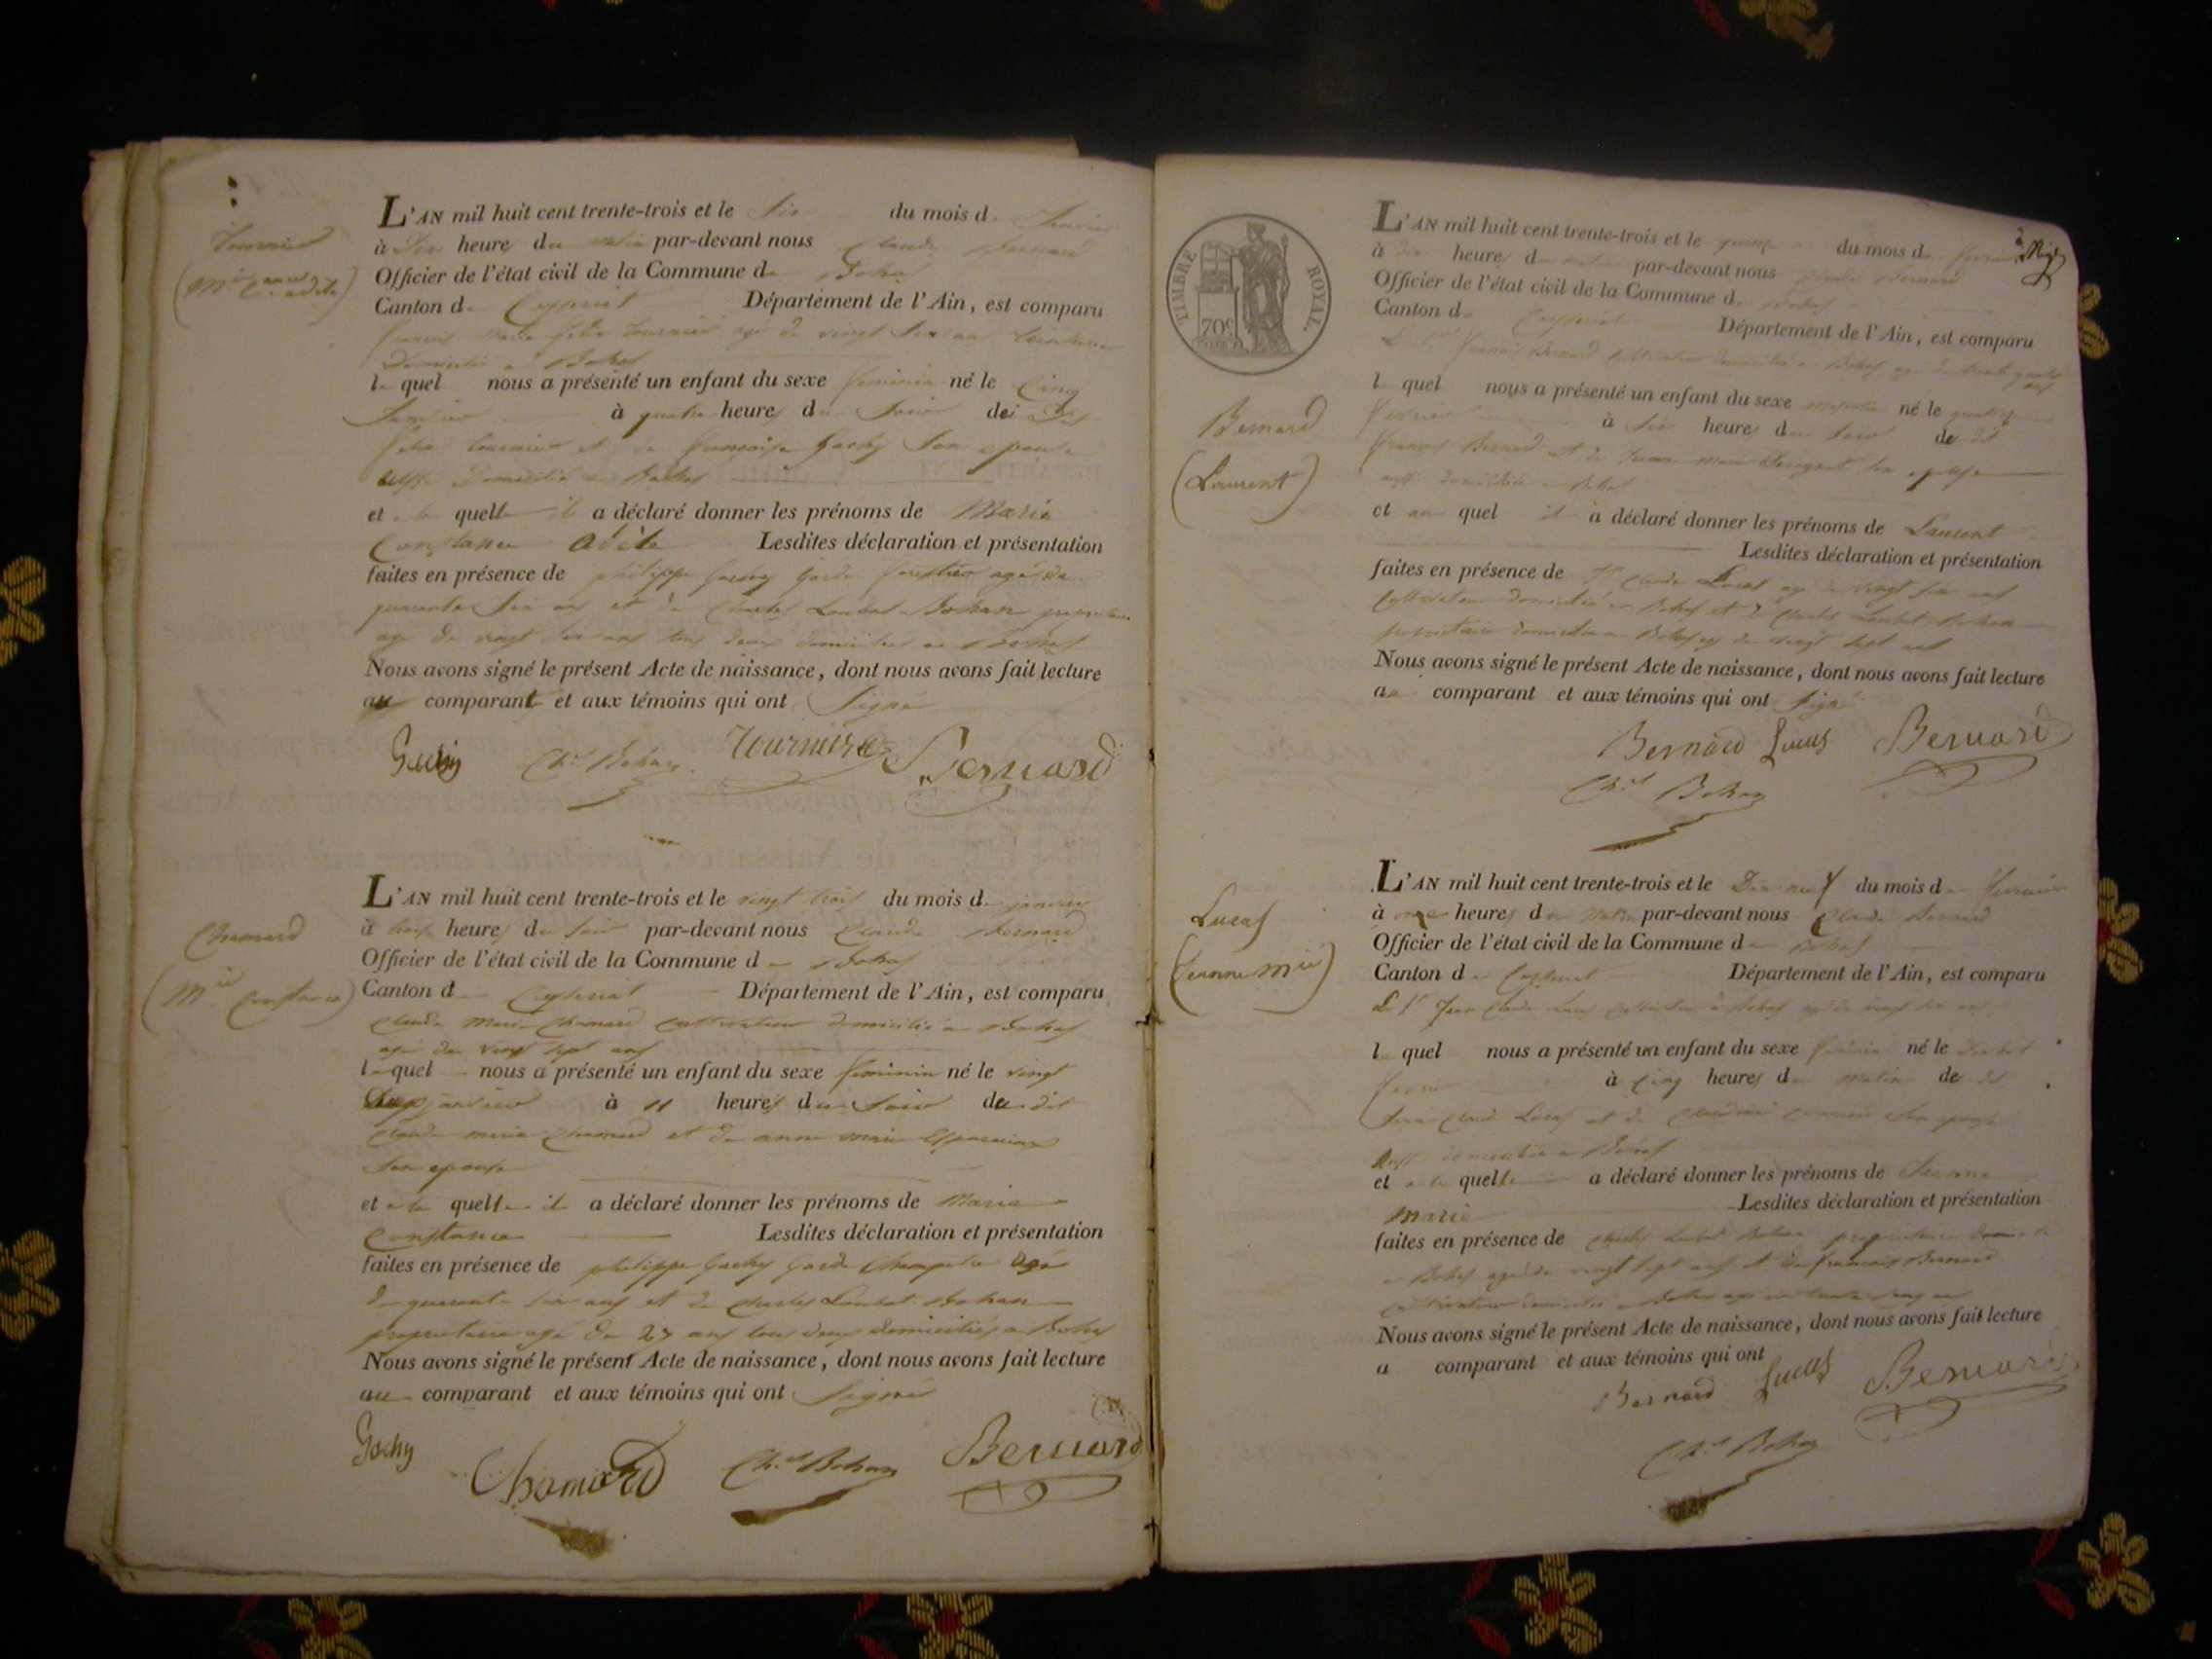 Tournier
(Mie Cance adèle)
L'AN mil huit cent trente-trois et le six du mois d. Janvier
à Dix heures du matin par-devant nous Claude Bernard
Officier de l'état civil de la Commune de Bohas
Canton de Ceyseriat Département de l'Ain, est comparu
françois Marie felix tournier agé de vingt six ans
Domicilié a Bohas
lequel nous a présenté un enfant du sexe feminin né le cinq
Janvier à quatre heures du soir de
felix tournier et de françoise Gachy son epouse
aussi Domicilié a Bohas
et a la quelle il a déclaré donner les prénoms de Marie
Constance Adèle Lesdites déclaration et présentation
faites en présence de philippe Gachy Garde forestier agé de
quarante six ans et de Charles Loubat Bohan proprietaire
agé de vingt six ans tous deux domiciliés a Bohas
Nous avons signé le présent Acte de naissance, dont nous avons fait lecture
au comparant et aux témoins qui ont Signé
Gachy Ch.s Bohan Tournier Bernard
Chamard
(Mie Constance)
L'AN mil huit cent trente-trois et le vingt trois du mois de janvier
à trois heures du soir par-devant nous Claude Bernard
Officier de l'état civil de la Commune de Bohas
Canton de Ceyseriat Département de l'Ain, est comparu
Claude Marie Chamard Cultivateur domicilié a Bohas
agé de vingt sept ans
lequel nous a présenté un enfant du sexe feminin né le vingt
janvier à 11 heures du Soir du dit
Claude marie Chamard et de anne marie
Son epouse
et a la quelle il a déclaré donner les prénoms de Marie
Constance Lesdites déclaration et présentation
faites en présence de philippe Gachy Garde Champetre agé
de quarante six ans et de Charles Loubat Bohan
proprietaire agé de 27 ans tous deux domiciliés a Bohas
Nous avons signé le présent Acte de naissance, dont nous avons fait lecture
au comparant et aux témoins qui ont Signé
Gachy Chamard Ch.s Bohan Bernard
TIMBRE ROYAL.
70c
Bernard
(Laurent)
L'AN mil huit cent trente-trois et le quinze du mois de fevrier
à dix heures du matin par-devant nous Claude Bernard
Officier de l'état civil de la Commune de Bohas
Canton de Ceyseriat Département de l'Ain, est comparu
Le Sr françois Bernard Cultivateur domicilié a Bohas agé de trente
lequel nous a présenté un enfant du sexe masculin né le quatorze
fevrier à six heures du soir de
françois Bernard et de Jeanne Marie son epouse
aussi domiciliée a Bohas
et au quel il a déclaré donner les prénoms de Laurent
Lesdites déclaration et présentation
faites en présence de Jn Claude Lucas agé de vingt six ans
Cultivateur domicilié a Bohas et de Charles Loubat Bohan
proprietaire domicilié a Bohas agé de vingt sept ans
Nous avons signé le présent Acte de naissance, dont nous avons fait lecture
au comparant et aux témoins qui ont signé
Bernard Lucas Bernard
Ch.s Bohan
Lucas
(Jeanne Mie)
L'AN mil huit cent trente-trois et le Dix neuf du mois de fevrier
à onze heures du Matin par-devant nous Claude Bernard
Officier de l'état civil de la Commune de Bohas
Canton de Ceyseriat Département de l'Ain, est comparu
Le Sr Jean Claude Lucas Cultivateur à Bohas agé de vingt six ans
lequel nous a présenté un enfant du sexe feminin né le dix huit
fevrier à cinq heures du matin de
Jean Claude Lucas et de Claudine son epouse
aussi domiciliée a Bohas
et a la quelle a déclaré donner les prénoms de Jeanne
Marie Lesdites déclaration et présentation
faites en présence de Charles Loubat Bohan proprietaire
a Bohas agé de vingt sept ans et de françois Bernard
cultivateur domicilié a Bohas agé de trente
Nous avons signé le présent Acte de naissance, dont nous avons fait lecture
a comparant et aux témoins qui ont
Bernard Lucas Bernard
Ch.s Bohan